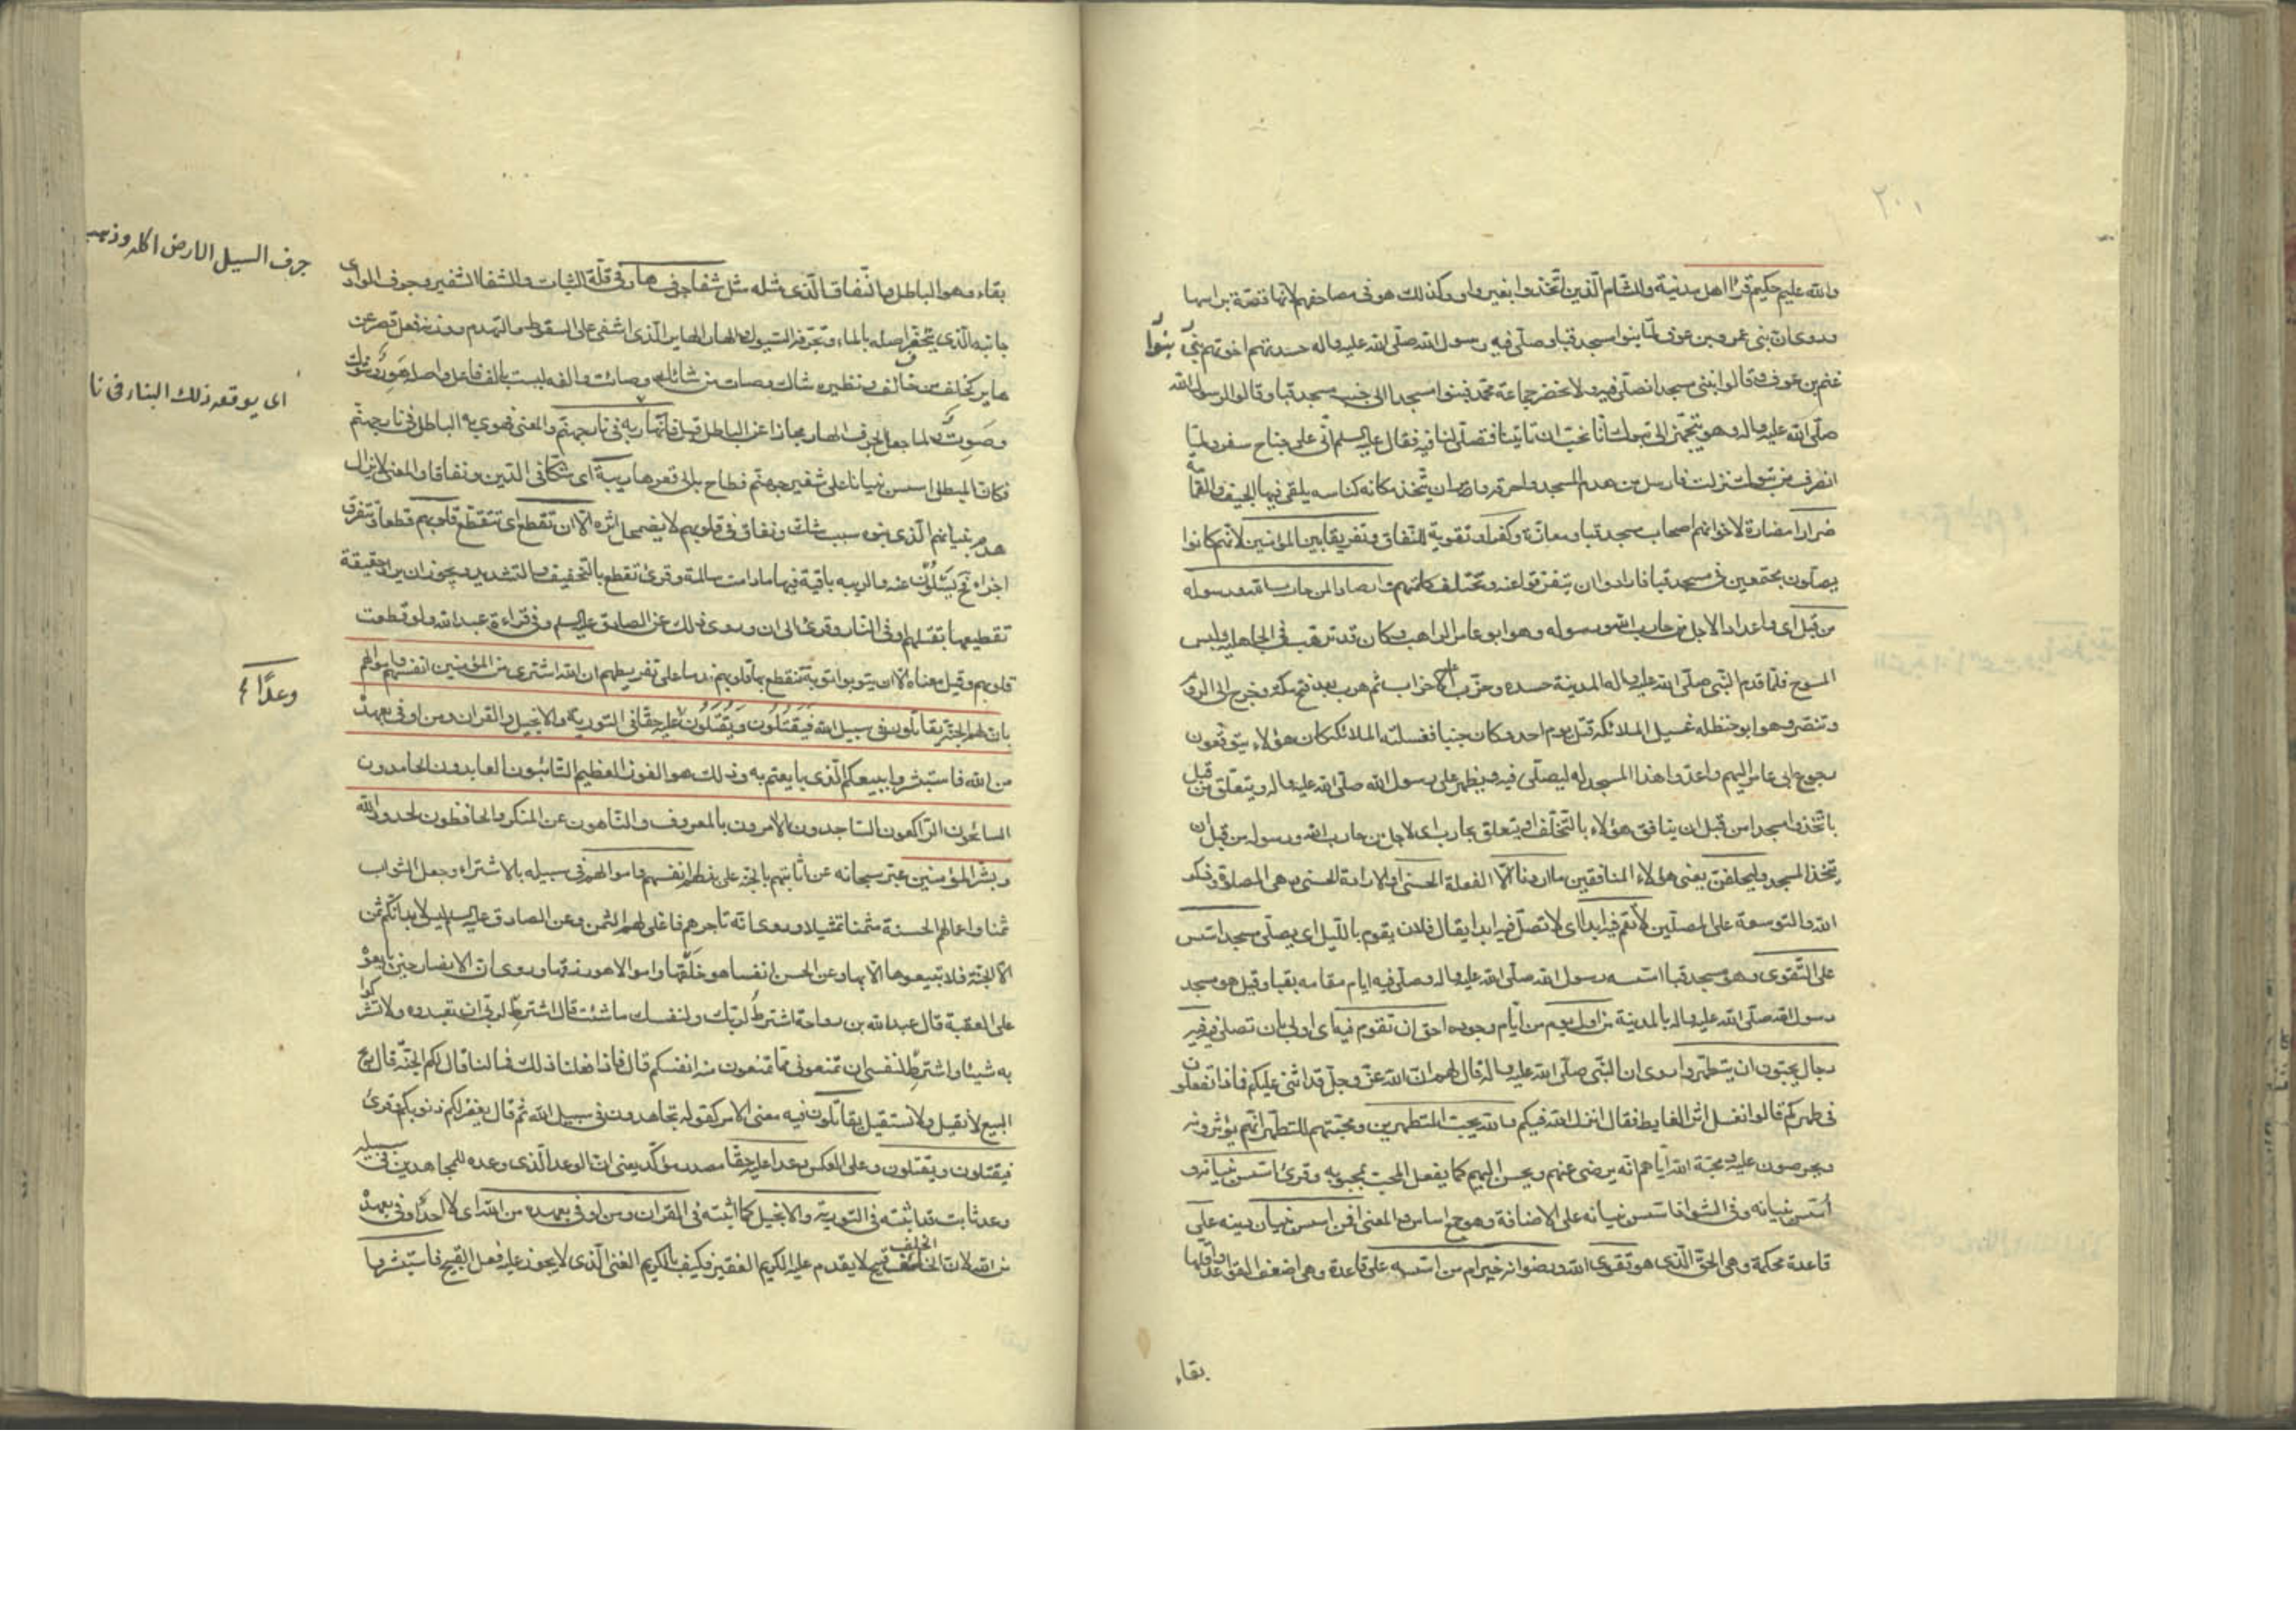 ٢٠١
والله عليم حكيم قرأ اهل مدينة والشام الّذين اتّخذوا بغير واو وكذلك هو فى مصاحفهم لانّها قصّة براسها
وروى ان بنى عمرو بن عوف لمّا بنوا مسجد قبا وصلّى فيه رسول الله صلّى الله عليه واله حسدتهم اخوتهم بنو
غنم بن عوف وقالوا نبنى مسجدا نصلّى فيه ولا نحضر جماعة محمّد فبنوا مسجدا الى جنب مسجد قبا وقالوا لرسول الله
صلّى الله عليه واله وهو يتجهّز الى تبوك انّا نحبّ ان تاتينا فتصلّى لنا فيه فقال عليه السلم انّى على جناح سفر ولمّا
انصرف من تبوك نزلت فارسل من هدم المسجد واحرقه وامر ان يتّخذ مكانه كناسه يلقى فيها الجيف والقمامة
ضرارا مضارة لاخوانهم اصحاب مسجد قبا ومعازّة وكفرا وتقوية للنّفاق وتفريقا بين المؤمنين لانّهم كانوا
يصلّون مجتمعين فى مسجد قبا فارادوا ان يتفرّقوا عنه وتختلف كلمتهم وارصادا لمن حارب الله ورسوله
من قبل اى واعدادا لاجل من حارب الله ورسوله وهو ابو عامر الراهب وكان قد ترهّب فى الجاهلية ولبس
المسوح فلمّا قدم النّبى صلّى الله عليه واله المدينة حسده وحزّب عليه الاحزاب ثم هرب بعد فتح مكة وخرج الى الروم
وتنصّر وهو ابو حنظله غسيل الملائكه قتل يوم احد وكان جنبا فغسلته الملائكه كان هؤلاء يتوقّعون
رجوع ابى عامر اليهم واعدّوا هذا المسجد له ليصلّى فيه ويظهر على رسول الله صلّى الله عليه واله ويتعلّق من قبل
باتّخذوا مسجدا من قبل ان ينافق هؤلاء بالتخلّف او يتعلق بحارب اى لاجل من حارب الله ورسوله من قبل ان
يتّخذ المسجد وليحلفنّ يعنى هؤلاء المنافقين ما اردنا الّا الفعلة الحسنى او الارادة الحسنى وهى الصلاة وذكر
الله والتوسعة على المصلّين لا تقم فيه ابدا اى لا تصلّ فيه ابدا يقال فلان يقوم بالليل اى يصلّى مسجد اسّس
على التّقوى وهو مسجد قبا اسّسه رسول الله صلّى الله عليه واله وصلّى فيه ايام مقامه بقبا وقيل هو مسجد
رسول الله صلّى الله عليه واله بالمدينة من اول يوم من ايّام وجوده احق ان تقوم فيه اى اولى بان تصلى فيه فيه
رجال يحبّون ان يتطهّروا روى ان النّبى صلّى الله عليه واله قال لهم انّ الله عزّ وجلّ قد اثنى عليكم فماذا تفعلون
فى طهركم قالوا نغسل اثر الغايط فقال انزل الله فيكم والله يحبّ المتطهرين ومحبّتهم للتطهّر انّهم يؤثرونه
ويحرصون عليه ومحبّة الله ايّاهم انّه يرضى عنهم ويحسن اليهم كما يفعل المحبّ بمحبوبه وقرئ اسّس بنيانه و
أسّس بنيانه وفى الشواذ اسس بنيانه على الاضافة وهو جمع اساس والمعنى افمن اسس بنيان دينه على
قاعدة محكمة وهى الحقّ الّذى هو تقوى الله ورضوانه خير ام من اسّسه على قاعدة وهى اضعف القواعد واقلها
بنوا
بقاء
بقاء وهو الباطل والنّفاق الّذى مثله مثل شفا جرف هار فى قلّة الثبات والشفا الشفير وجرف الوادى
جانبه الّذى يتحفّر اصله بالماء وتجرّفه السّيول والهار الهاير الّذى اشفى على السقوط والتهدم ووزنه فعل قصر عن
هاير كخلف من خالف ونظيره شاك وصات من شائك وصائت والفه ليست بالف فاعل واصله هَوِرٌ وشوك
وصوتٌ ولما جعل الجرف الهار مجازا عن الباطل قيل فانهار به فى نار جهنّم والمعنى فهوى به الباطل فى نار جهنّم
فكانّ المبطل اسس بنيانا على شفير جهنّم فطاح به الى قعرها ريبة اى شكّا فى الدّين ونفاقا والمعنى لا يزال
هدم بنيانهم الّذى بنوه سبب شك ونفاق فى قلوبهم لا يضمحل اثره الّا ان تقطع اى تتقطّع قلوبهم قطعا وتتفرق
اجزاء فحينئذ يسلون عنه والريبه باقية فيها مادامت سالمة وقرئ تقطع بالتخفيف والتشديد ويجوز ان يراد حقيقة
تقطيعها بقتلهم او فى النار وقرئ الى ان وروى ذلك عن الصادق عليه السلم وفى قراءة عبدالله ولو قطعت
قلوبهم وقيل معناه الّا ان يتوبوا توبة تتقطع بها قلوبهم ندما على تفريطهم ان الله اشترى من المؤمنين انفسهم واموالهم
بان لهم الجنّة يقاتلون فى سبيل الله فَيَقتُلُون وَيُقتَلُون عليه حقّا فى التورية والانجيل والقران ومن اوفى بعهده
من الله فاستبشروا ببيعكم الّذى بايعتم به وذلك هو الفوز العظيم التّائبون العابدون الحامدون
السائحون الرّاكعون السّاجدون الامرون بالمعروف والنّاهون عن المنكر والحافظون لحدود الله
وبشّر المؤمنين عبّر سبحانه عن اثابتهم بالجنّة على بذلهم انفسهم واموالهم فى سبيله بالاشتراء وجعل الثواب
ثمنا واعمالهم الحسنة مثمنا تمثيلا وروى انّه تاجرهم فاغلى لهم الثّمن وعن الصادق عليه السلم ليس لابدانكم ثمن
الّا الجنّة فلا تبيعوها الّا بها وعن الحسن انفسا هو خلقها واموالا هو رزقها وروى انّ الانصار حين بايعوه
على العقبة قال عبدالله بن رواحة اشترط لربّك ولنفسك ما شئت قال اشترط لربّى ان تعبدوه ولا تشركوا
به شيئا واشترط لنفسى ان تمنعونى ممّا تمنعون منه انفسكم قال فاذا فعلنا ذلك فما لنا قال لكم الجنّة قال ربح
البيع لا نقيل ولا نستقيل يقاتلون فيه معنى الامر كقوله تجاهدون فى سبيل الله ثم قال يغفر لكم ذنوبكم وقرئ
فيقتلون ويقتلون وعلى العكس وعدا عليه حقّا مصدر مؤكّد يعنى انّ الوعد الّذى وعده للمجاهدين فى سبيله
وعد ثابت قد اثبته فى التورية والانجيل كما اثبته فى القران ومن اوفى بعهده من الله اى لا احد اوفى بعهده
من الله لان الخلف قبيح لا يقدم عليه الكريم الفقير فكيف بالكريم الغنى الّذى لا يجوز عليه فعل القبيح فاستبشروا
جرف السيل الارض اكله وذهب
اى يوقعه ذلك البناء فى نا
وعدًا